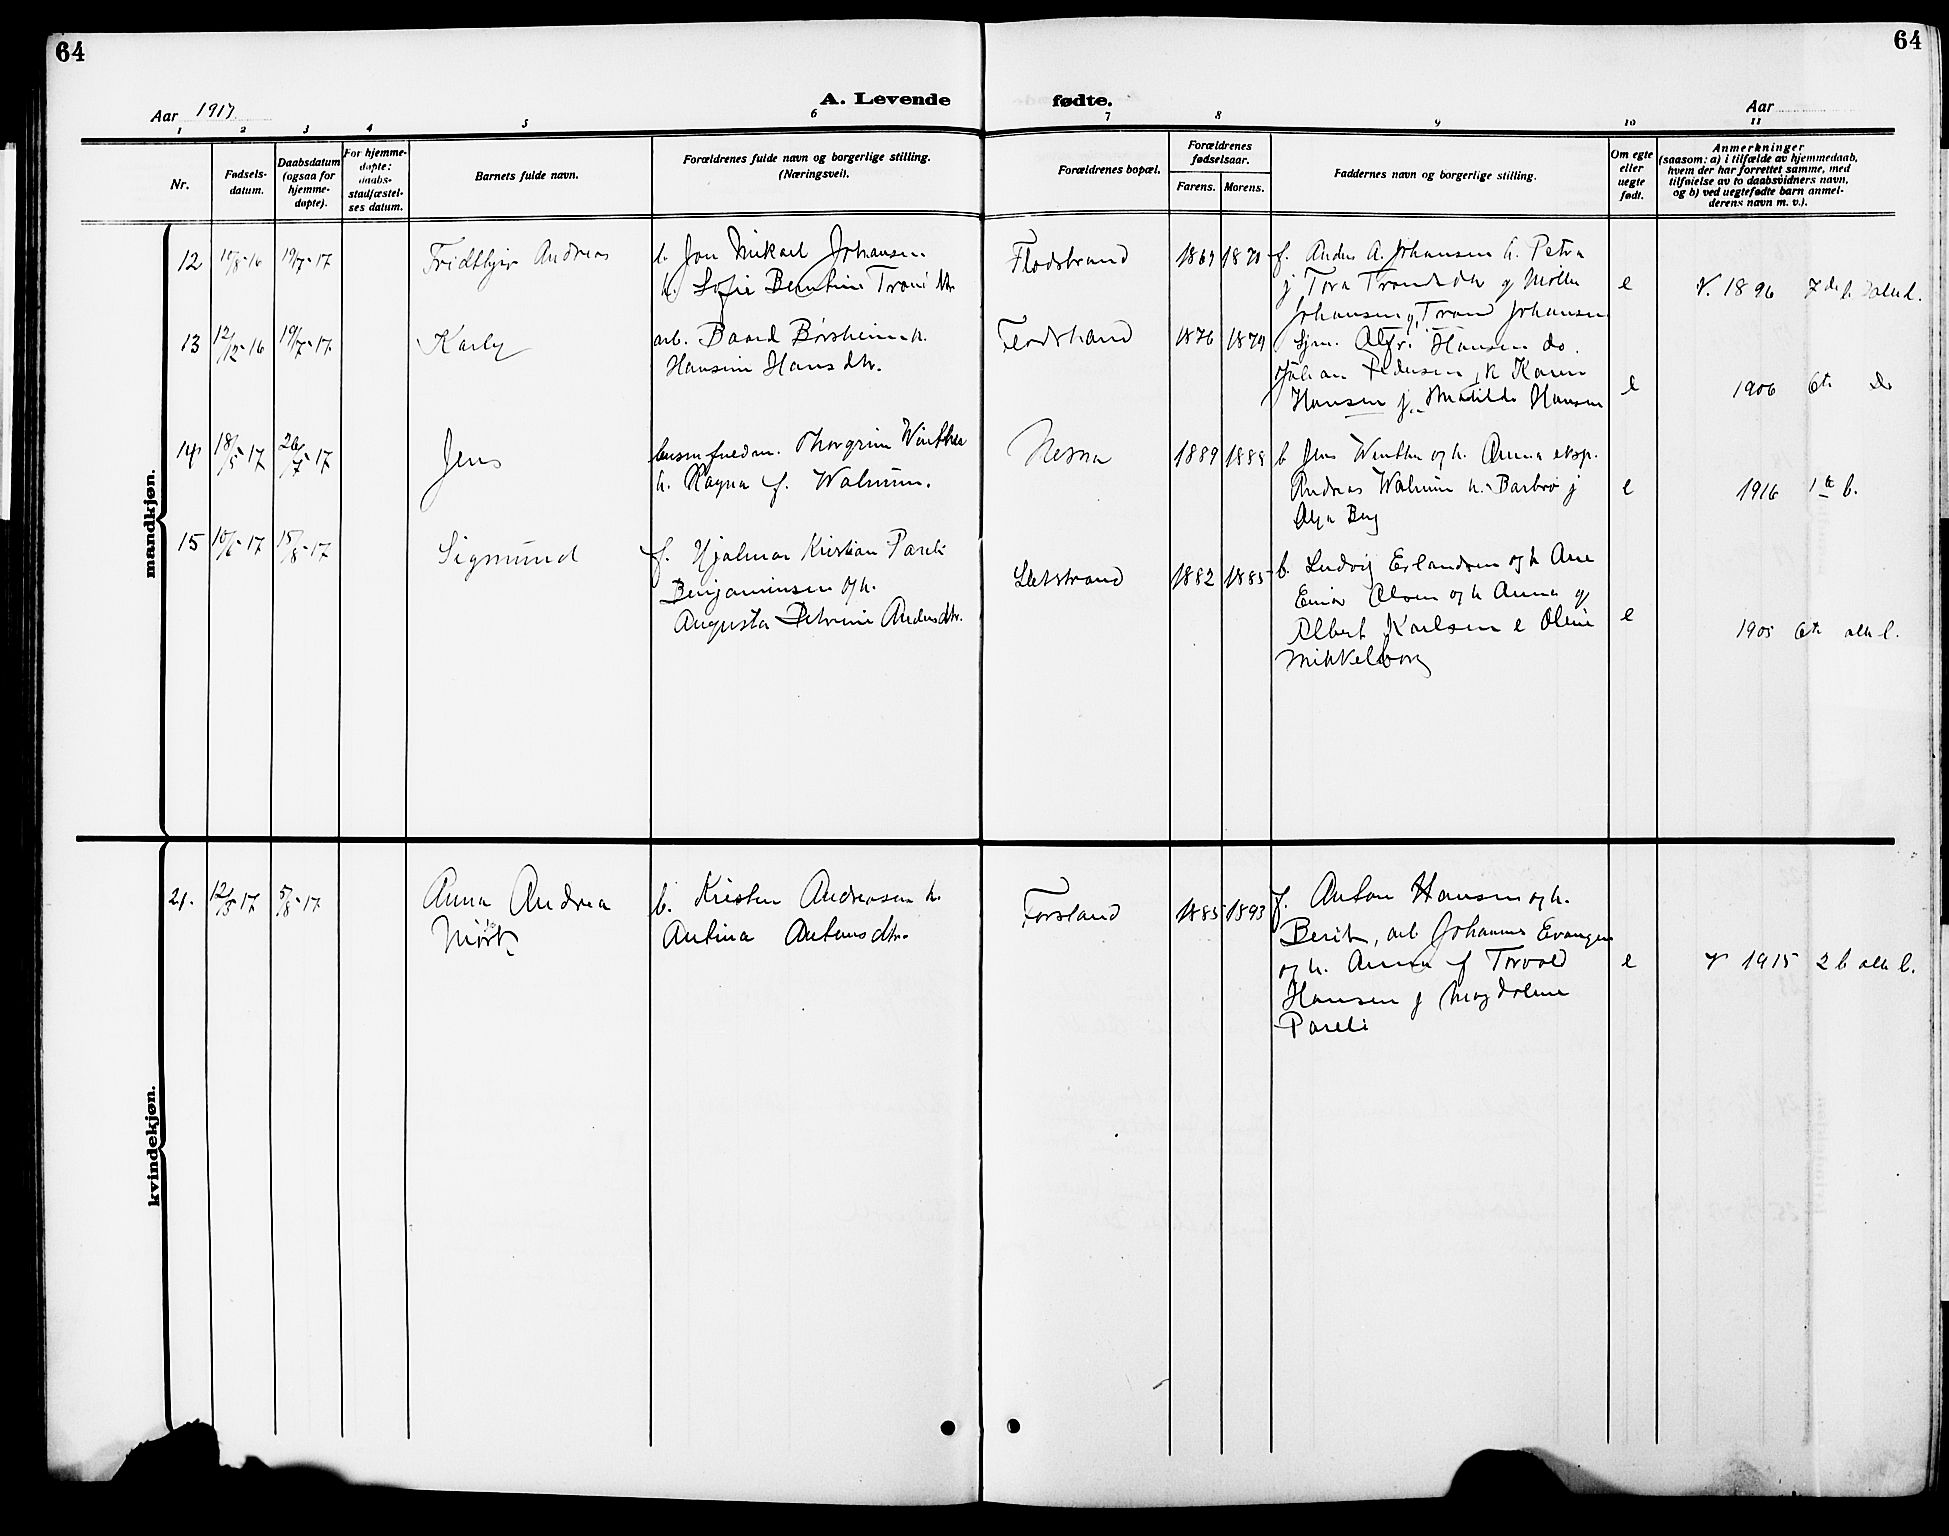 64
64
A. Levende
fødte.
Aar 1917
Aar
1
2
3
4
5
6
7
8
9
10
11
Nr.
Fødsels-
datum.
Daabsdatum
(ogsaa for
hjemme-
døpte).
For hjemme-
døpte:
daabs-
stadfæstel-
ses datum.
Barnets fulde navn.
Forældrenes fulde navn og borgerlige stilling.
(Næringsvei).
Forældrenes bopæl.
Forældrenes
fødselsaar.
Farens.
Morens.
Faddernes navn og borgerlige stilling.
Om egte
eller
uegte
født.
Anmerkninger
(saasom: a) i tilfælde av hjemmedaab,
hvem der har forrettet samme, med
tilføielse av to daabsvidners navn,
og b) ved uegtefødte barn anmel-
derens navn m. v.).
mandkjøn.
12
10/8-16
19/7-17
Fridthjov Andreas
b. Jon Mikael Johansen
h. Sofie Bentine Trond dtr.
Flodstrand
1869
1870
f. Anders A. Johansen h. Petra
j Tora Tronds dtr g Møller
Johansen g. Trond Johansen
e
V. 1896 7de
13
12/12-16
19/7-17
Karly
arb. Baard Børsheim h.
Hansine Hans dtr.
Flodstrand
1876
1879
Sjm. Alfr. Hansen do.
Johan Pedersen, k Karen
Hansen j. Matilde Hansen
e
1906 6te do
14
18/5-17
26/7-17
Jens
Thorgrim Winther
h. Ragna f. Walnum.
Nesna
1889
1889
b Jens Winther og h. Anna eksp.
Andreas Walnum h. Barbro j
Berg
e
1916 1te b.
15
10/6-17
15/8-17
Sigmund
f. Hjalmar Kristian Pareli
Benjaminsen og h.
Augusta Petrine Anders dtr.
Sletstrand
1882
1885
b. Ludvig Erlandsen og h Ane
Einar Olsen og h Anna g
Albert Karlsen e Oline
Mikkelborg
e
1905 6te alle l.
kvindekjøn.
21.
12/5-17
5/8-17
Anna Andrea
Mørk
b. Kristen Andreassen h.
Antina Antons dtr.
Forsland
1885
1893
f. Anton Hansen og h.
Berit, arb Johannes Evangen
og h. Anna f Torvald
Hansen j Magdalene
Pareli
e
V 1915 2 b alle l.